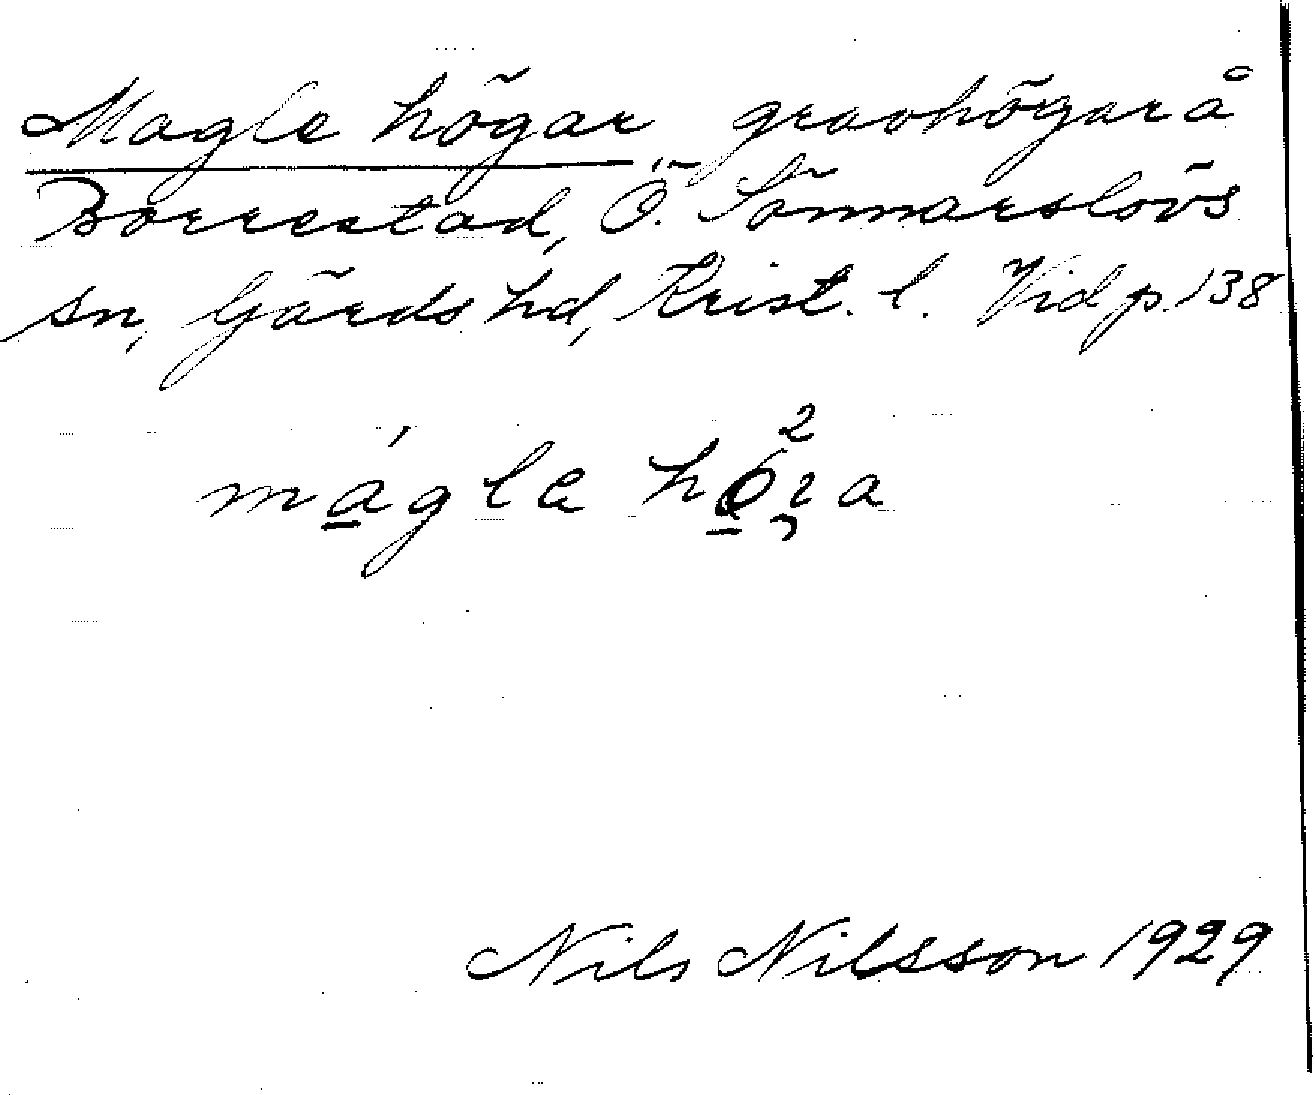 Magle högar, gravhögar å
Borrestad, Ö. Sönnarslövs
sn, Gärds hd, Krist. l. Vid p. 138
mágle
Nils Nilsson 1929